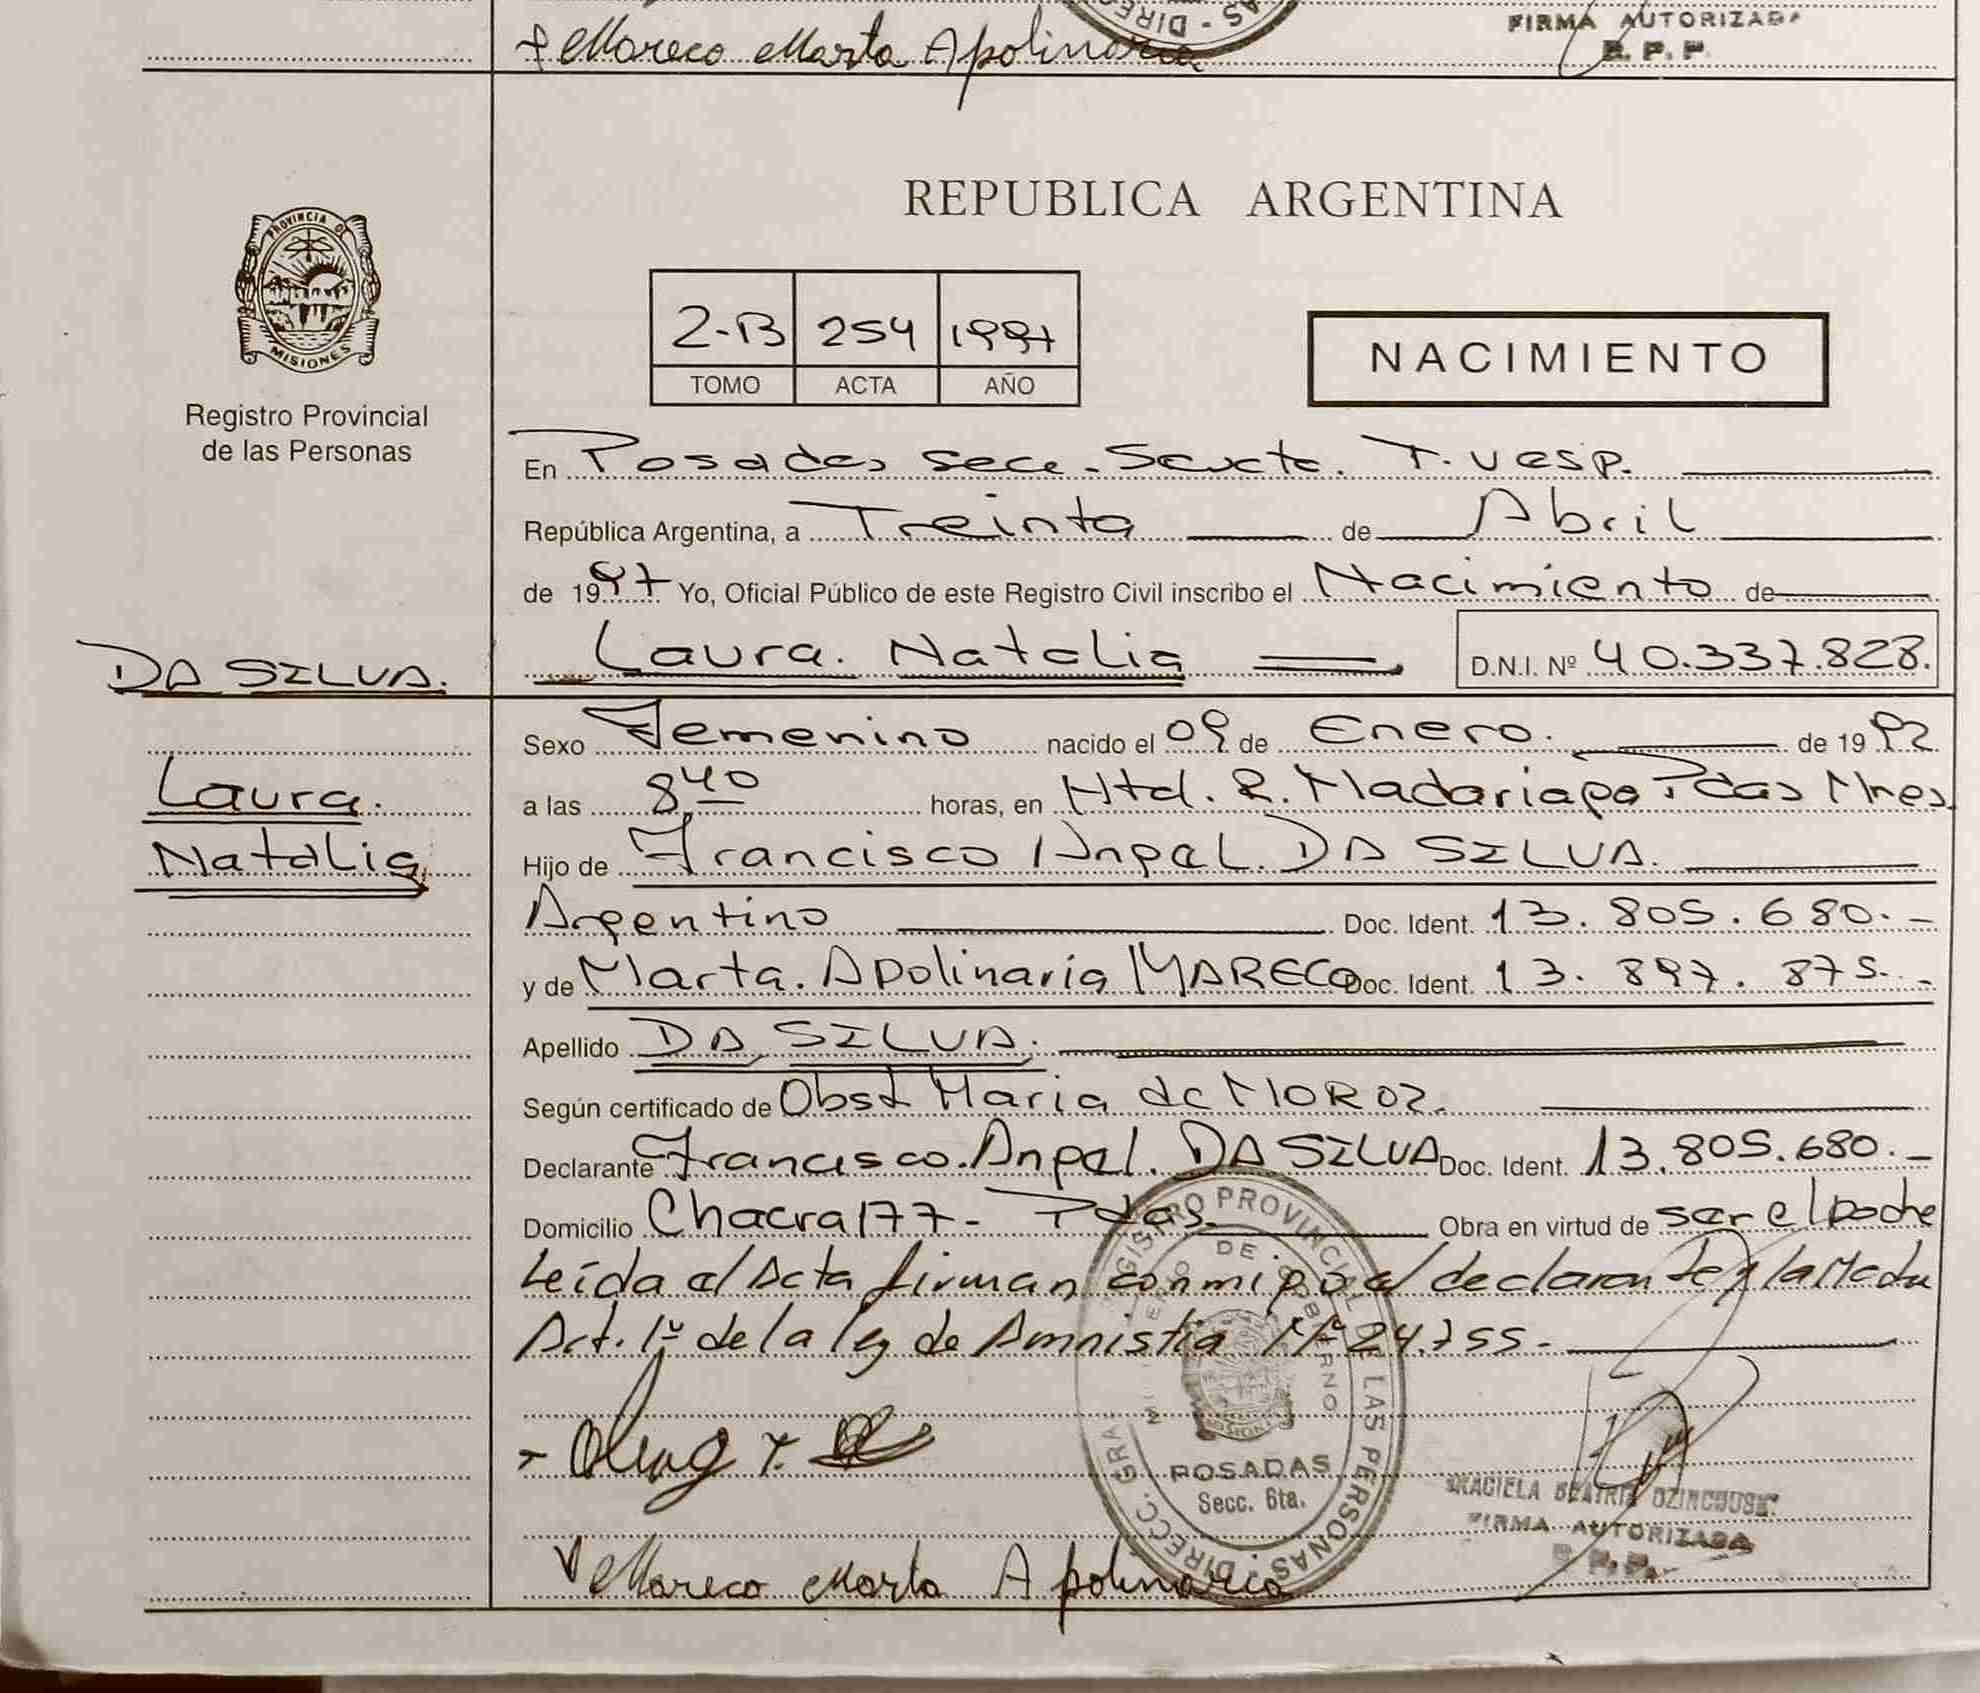 AS - DIRE
FIRMA AUTORIZADA
R. P. P.
Mareco Marta Apolinaria
PROVINCIA DE
MISIONES
Registro Provincial
de las Personas
REPUBLICA ARGENTINA
2-B 254 1997
TOMO ACTA AÑO
NACIMIENTO
En Posadas Secc. Sexta. T. vesp.
República Argentina, a Treinta de Abril
de 1997 Yo, Oficial Público de este Registro Civil inscribo el Nacimiento de
Laura. Natalia D.N.I. Nº 40.337.828.
DA SILVA.
Laura.
Natalia
Sexo Femenino nacido el 09 de Enero. de 1992
a las 8 40 horas, en Htal. R. Madariaga Pdas Mnes
Hijo de Francisco Angel. DA SILVA.
Argentino Doc. Ident. 13.805.680.-
y de Marta. Apolinaria MARECO Doc. Ident. 13.897.875.-
Apellido DA SILVA.
Según certificado de Obst Maria de MOROZ.
Declarante Francisco. Angel. DA SILVA Doc. Ident. 13.805.680.-
Domicilio Chacra 177- Pdas. Obra en virtud de ser el padre
Leída el Acta firman conmigo el declarante y la Madre
Art. 1º de la ley de Amnistia Nº 24.755.-
REGISTRO PROVINCIAL DE LAS PERSONAS - DIRECC. GRAL
DE GOBIERNO
POSADAS
Secc. 6ta.
GRACIELA BEATRIZ
FIRMA AUTORIZADA
R. P. P.
Mareco Marta Apolinaria